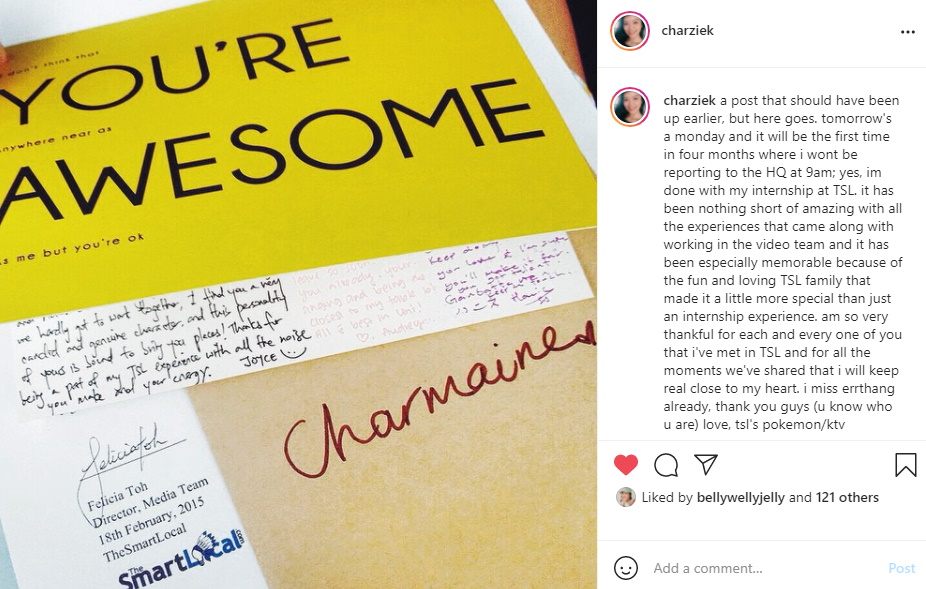 I don't think that
YOU'RE
anywhere near as
AWESOME
as me but you're ok
we hardly got to work together, I find you a very
candid and genuine character, and this personality
of yours is bound to bring you places! Thanks for
being a part of my TSL experience with all the noise
you make and your energy.
JOYCE
keep doing
Charmaine
Felicia Toh
Director, Media Team
18th February, 2015
TheSmartLocal
The
SmartLocal
.com
charziek
charziek a post that should have been
up earlier, but here goes. tomorrow's
a monday and it will be the first time
in four months where i wont be
reporting to the HQ at 9am; yes, im
done with my internship at TSL. it has
been nothing short of amazing with all
the experiences that came along with
working in the video team and it has
been especially memorable because of
the fun and loving TSL family that
made it a little more special than just
an internship experience. am so very
thankful for each and every one of you
that i've met in TSL and for all the
moments we've shared that i will keep
real close to my heart. i miss errthang
already, thank you guys (u know who
u are) love, tsl's pokemon/ktv
Liked by bellywellyjelly and 121 others
Add a comment...
Post